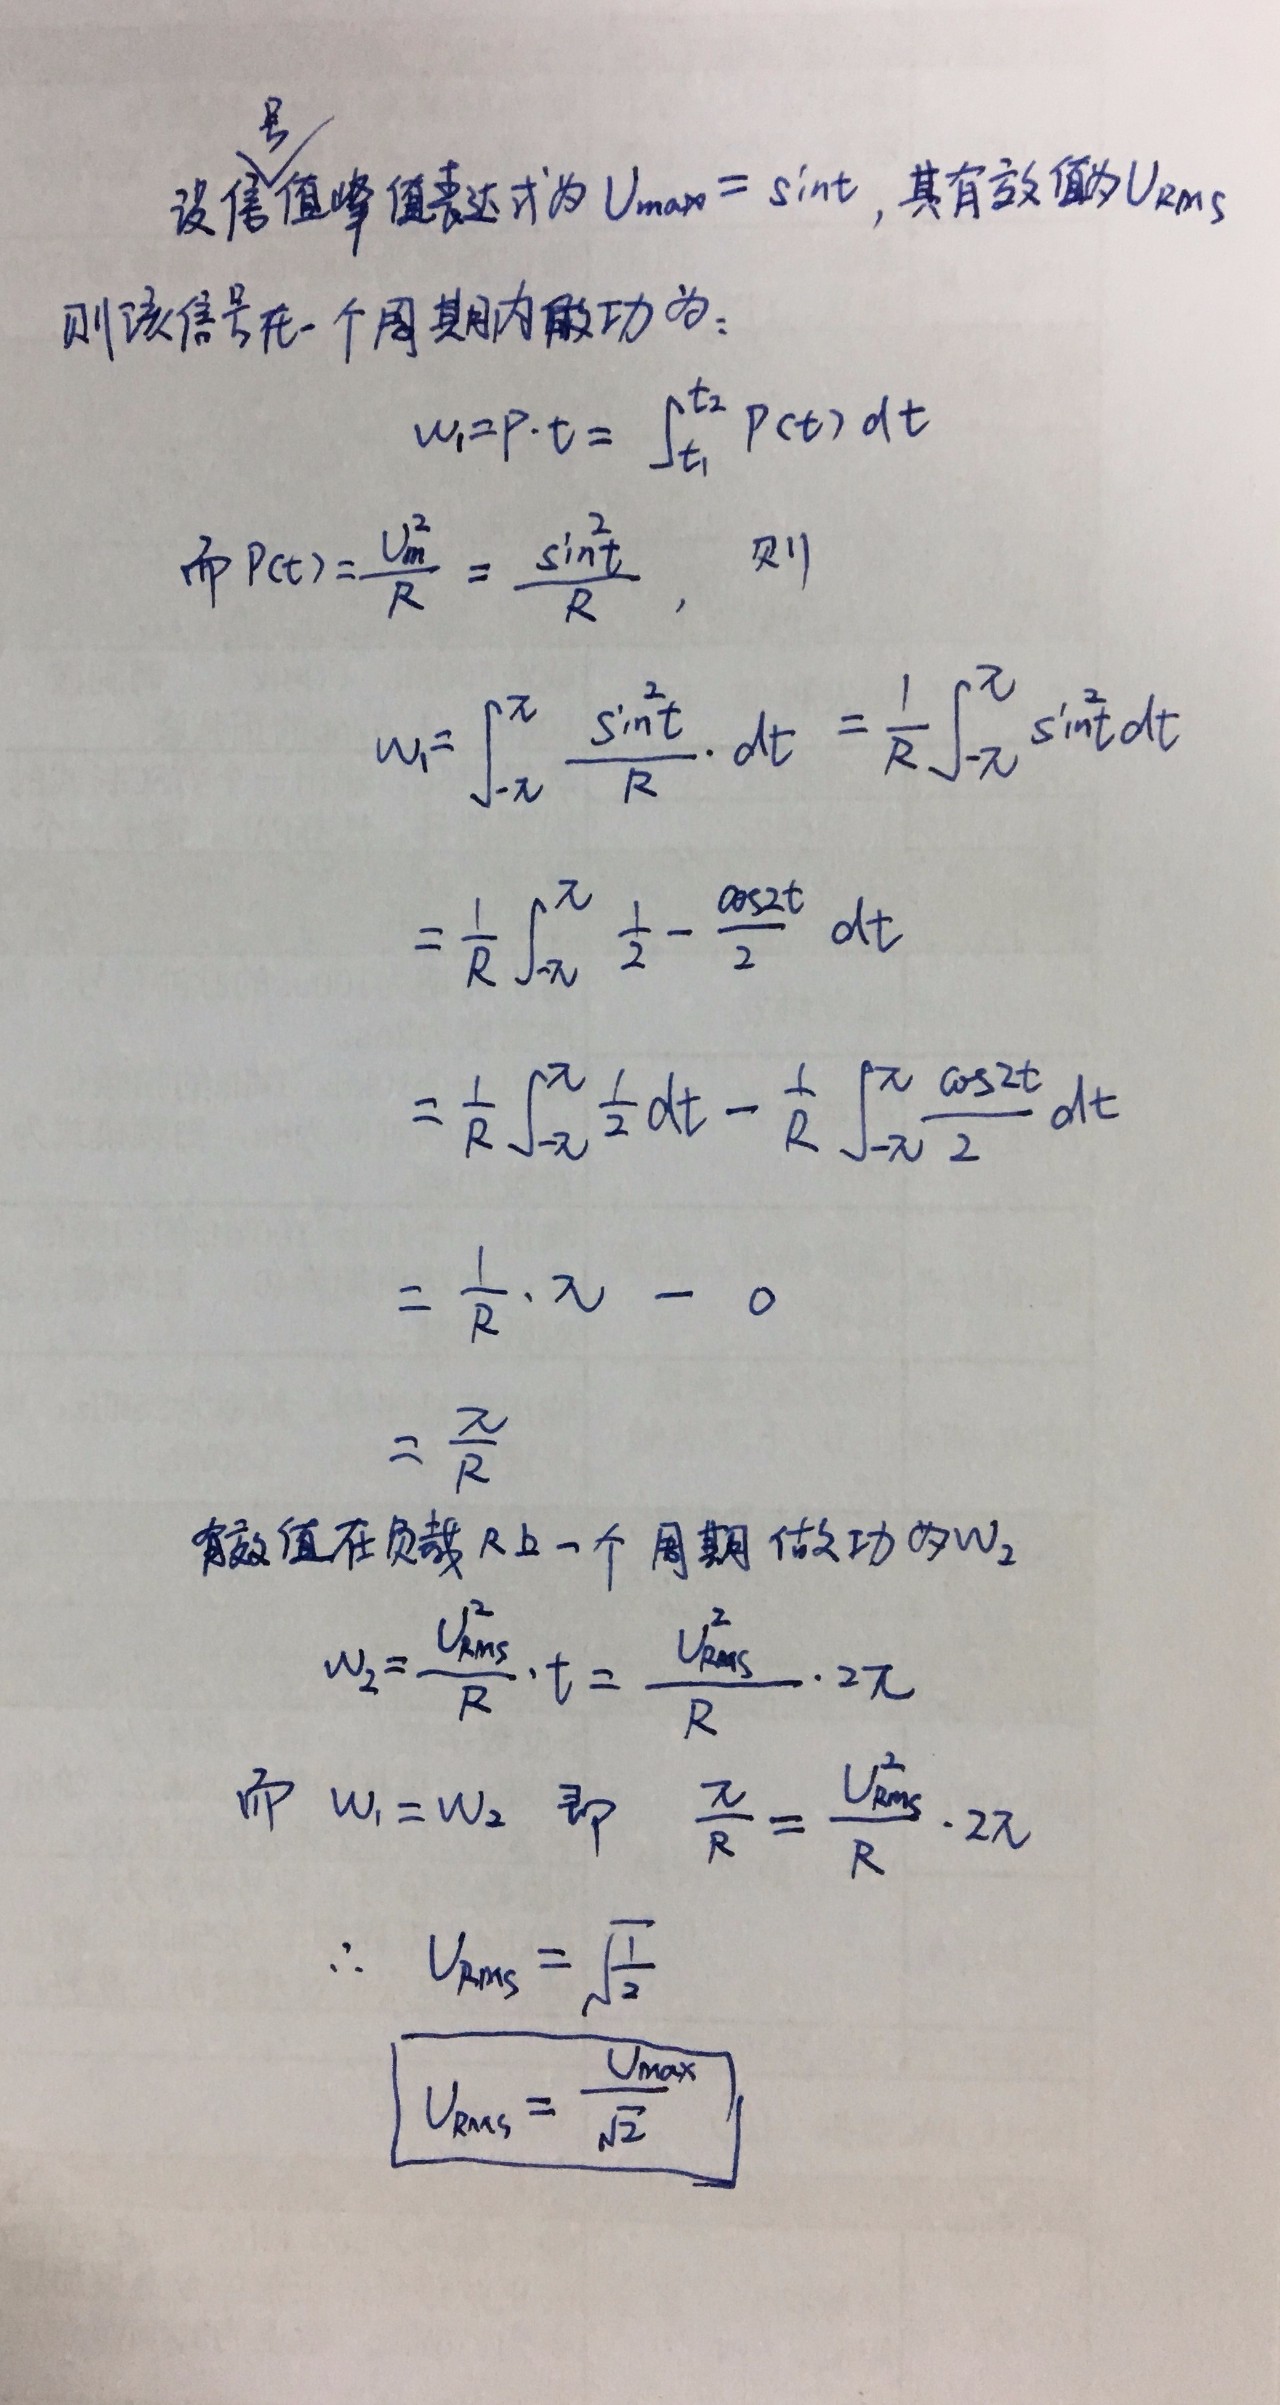 设信号值峰值表达式为 Umax = sint, 其有效值为URMS
则该信号在一个周期内做功为:
W₁=P·t = ∫_{t₁}^{t₂} P(t) dt
而 P(t) = Um²/R = sin²t/R , 则
W₁ = ∫_{-π}^{π} sin²t/R · dt = 1/R ∫_{-π}^{π} sin²t dt
= 1/R ∫_{-π}^{π} 1/2 - cos2t/2 dt
= 1/R ∫_{-π}^{π} 1/2 dt - 1/R ∫_{-π}^{π} cos2t/2 dt
= 1/R · π - 0
= π/R
有效值在负载R上一个周期做功为W₂
W₂ = URMS²/R · t = URMS²/R · 2π
而 W₁ = W₂ 即 π/R = URMS²/R · 2π
∴ URMS = √(1/2)
URMS = Umax/√2